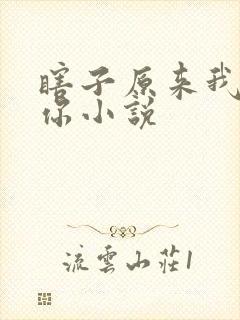 瞎子原来我
你小说
流雲山莊1